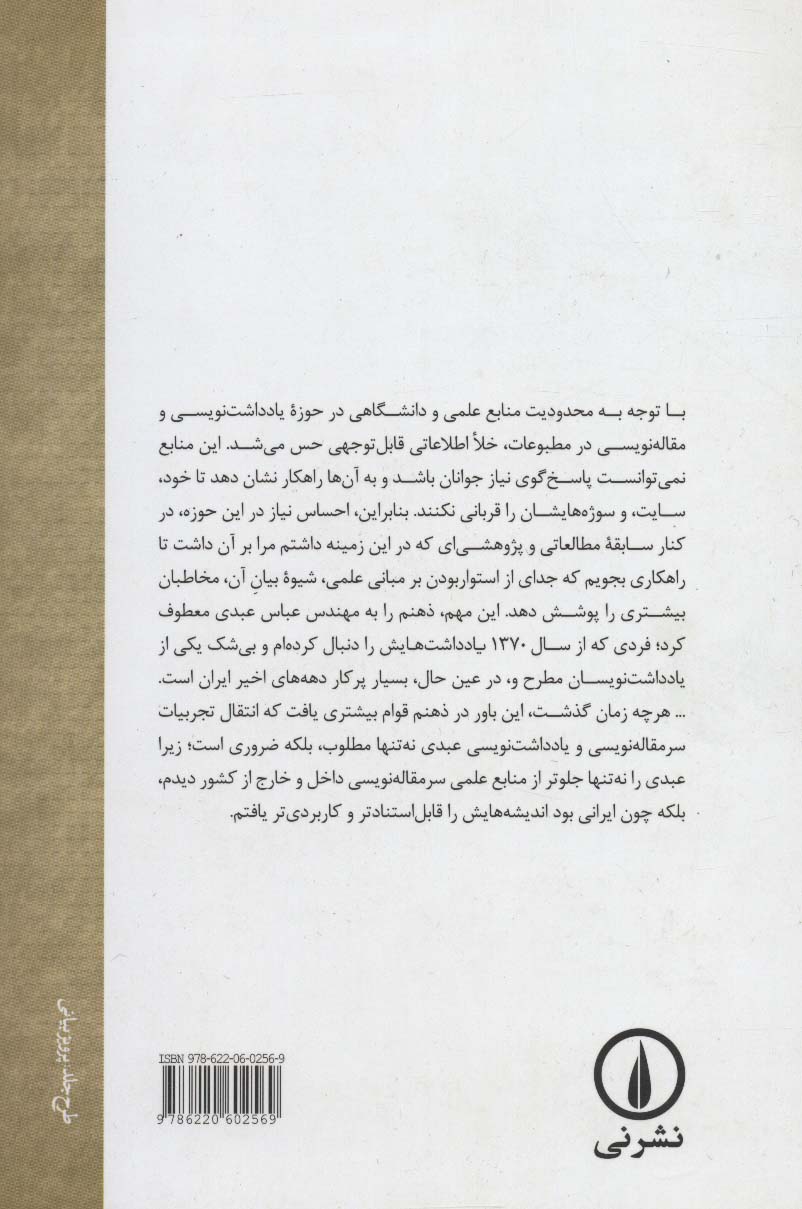 با توجه به محدودیت منابع علمی و دانشگاهی در حوزهٔ یادداشت‌نویسی و
مقاله‌نویسی در مطبوعات، خلأ اطلاعاتی قابل‌توجهی حس می‌شد. این منابع
نمی‌توانست پاسخ‌گوی نیاز جوانان باشد و به آن‌ها راهکار نشان دهد تا خود،
سایت، و سوژه‌هایشان را قربانی نکنند. بنابراین، احساس نیاز در این حوزه، در
کنار سابقهٔ مطالعاتی و پژوهشی‌ای که در این زمینه داشتم مرا بر آن داشت تا
راهکاری بجویم که جدای از استواربودن بر مبانی علمی، شیوهٔ بیانِ آن، مخاطبان
بیشتری را پوشش دهد. این مهم، ذهنم را به مهندس عباس عبدی معطوف
کرد؛ فردی که از سال ۱۳۷۰ یادداشت‌هایش را دنبال کرده‌ام و بی‌شک یکی از
یادداشت‌نویسان مطرح و، در عین حال، بسیار پرکار دهه‌های اخیر ایران است.
... هرچه زمان گذشت، این باور در ذهنم قوام بیشتری یافت که انتقال تجربیات
سرمقاله‌نویسی و یادداشت‌نویسی عبدی نه‌تنها مطلوب، بلکه ضروری است؛ زیرا
عبدی را نه‌تنها جلوتر از منابع علمی سرمقاله‌نویسی داخل و خارج از کشور دیدم،
بلکه چون ایرانی بود اندیشه‌هایش را قابل‌استنادتر و کاربردی‌تر یافتم.
طرح جلد: پرویز بیانی
ISBN 978-622-06-0256-9
9 786220 602569
نشرنی